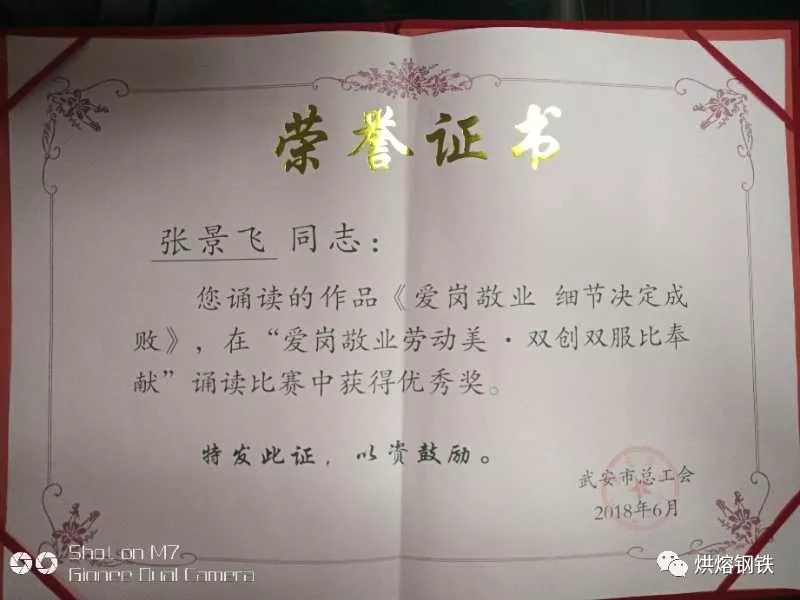 荣誉证书
张景飞 同志：
您诵读的作品《爱岗敬业 细节决定成
败》，在“爱岗敬业劳动美·双创双服比奉
献”诵读比赛中获得优秀奖。
特发此证，以资鼓励。
武安市总工会
2018年6月
Shot on M7
Gionee Dual Camera
烘熔钢铁